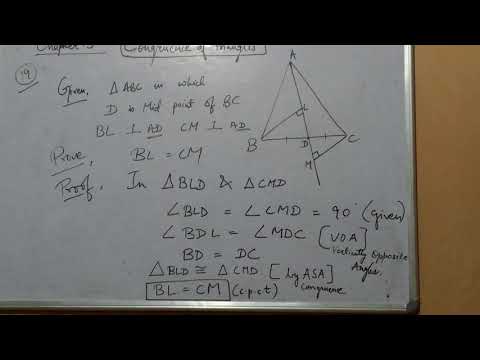 Chapter-5 Congruence of Triangles
19
Given, △ ABC in which
D is Mid point of BC
BL ⊥ AD CM ⊥ AD
Prove, BL = CM
Proof, In △BLD & △CMD
∠BLD = ∠CMD = 90° (given)
∠BDL = ∠MDC [V.O.A]
Vertically Opposite
Angles.
BD = DC
△BLD ≅ △CMD [by ASA]
Congruence
BL = CM (c.p.c.t)
A
L
B D C
M